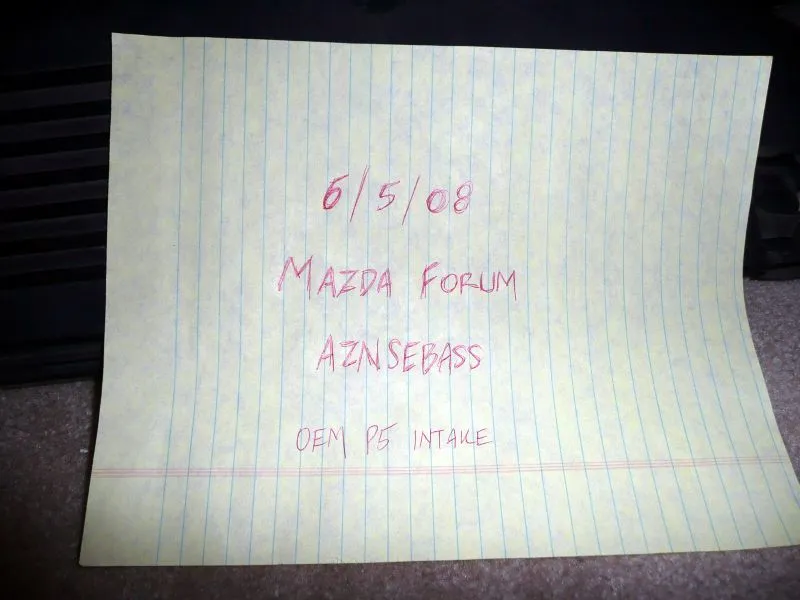 6/5/08
MAZDA FORUM
AZNSEBASS
OEM P5 INTAKE